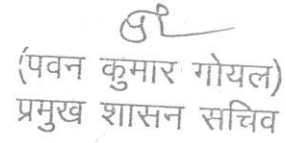 (पवन कुमार गोयल)
प्रमुख शासन सचिव